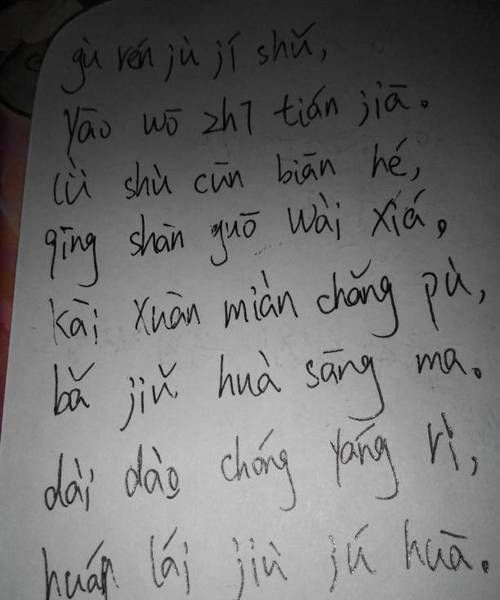 gù rén jù jí shǔ,
yāo wō zhī tián jiā。
lǜ shù cūn biān hé,
qīng shān guō wài xiá。
kāi xuān miàn chǎng pù,
bǎ jiǔ huà sāng ma。
dài dào chóng yáng rì,
huán lái jiù jú huā。